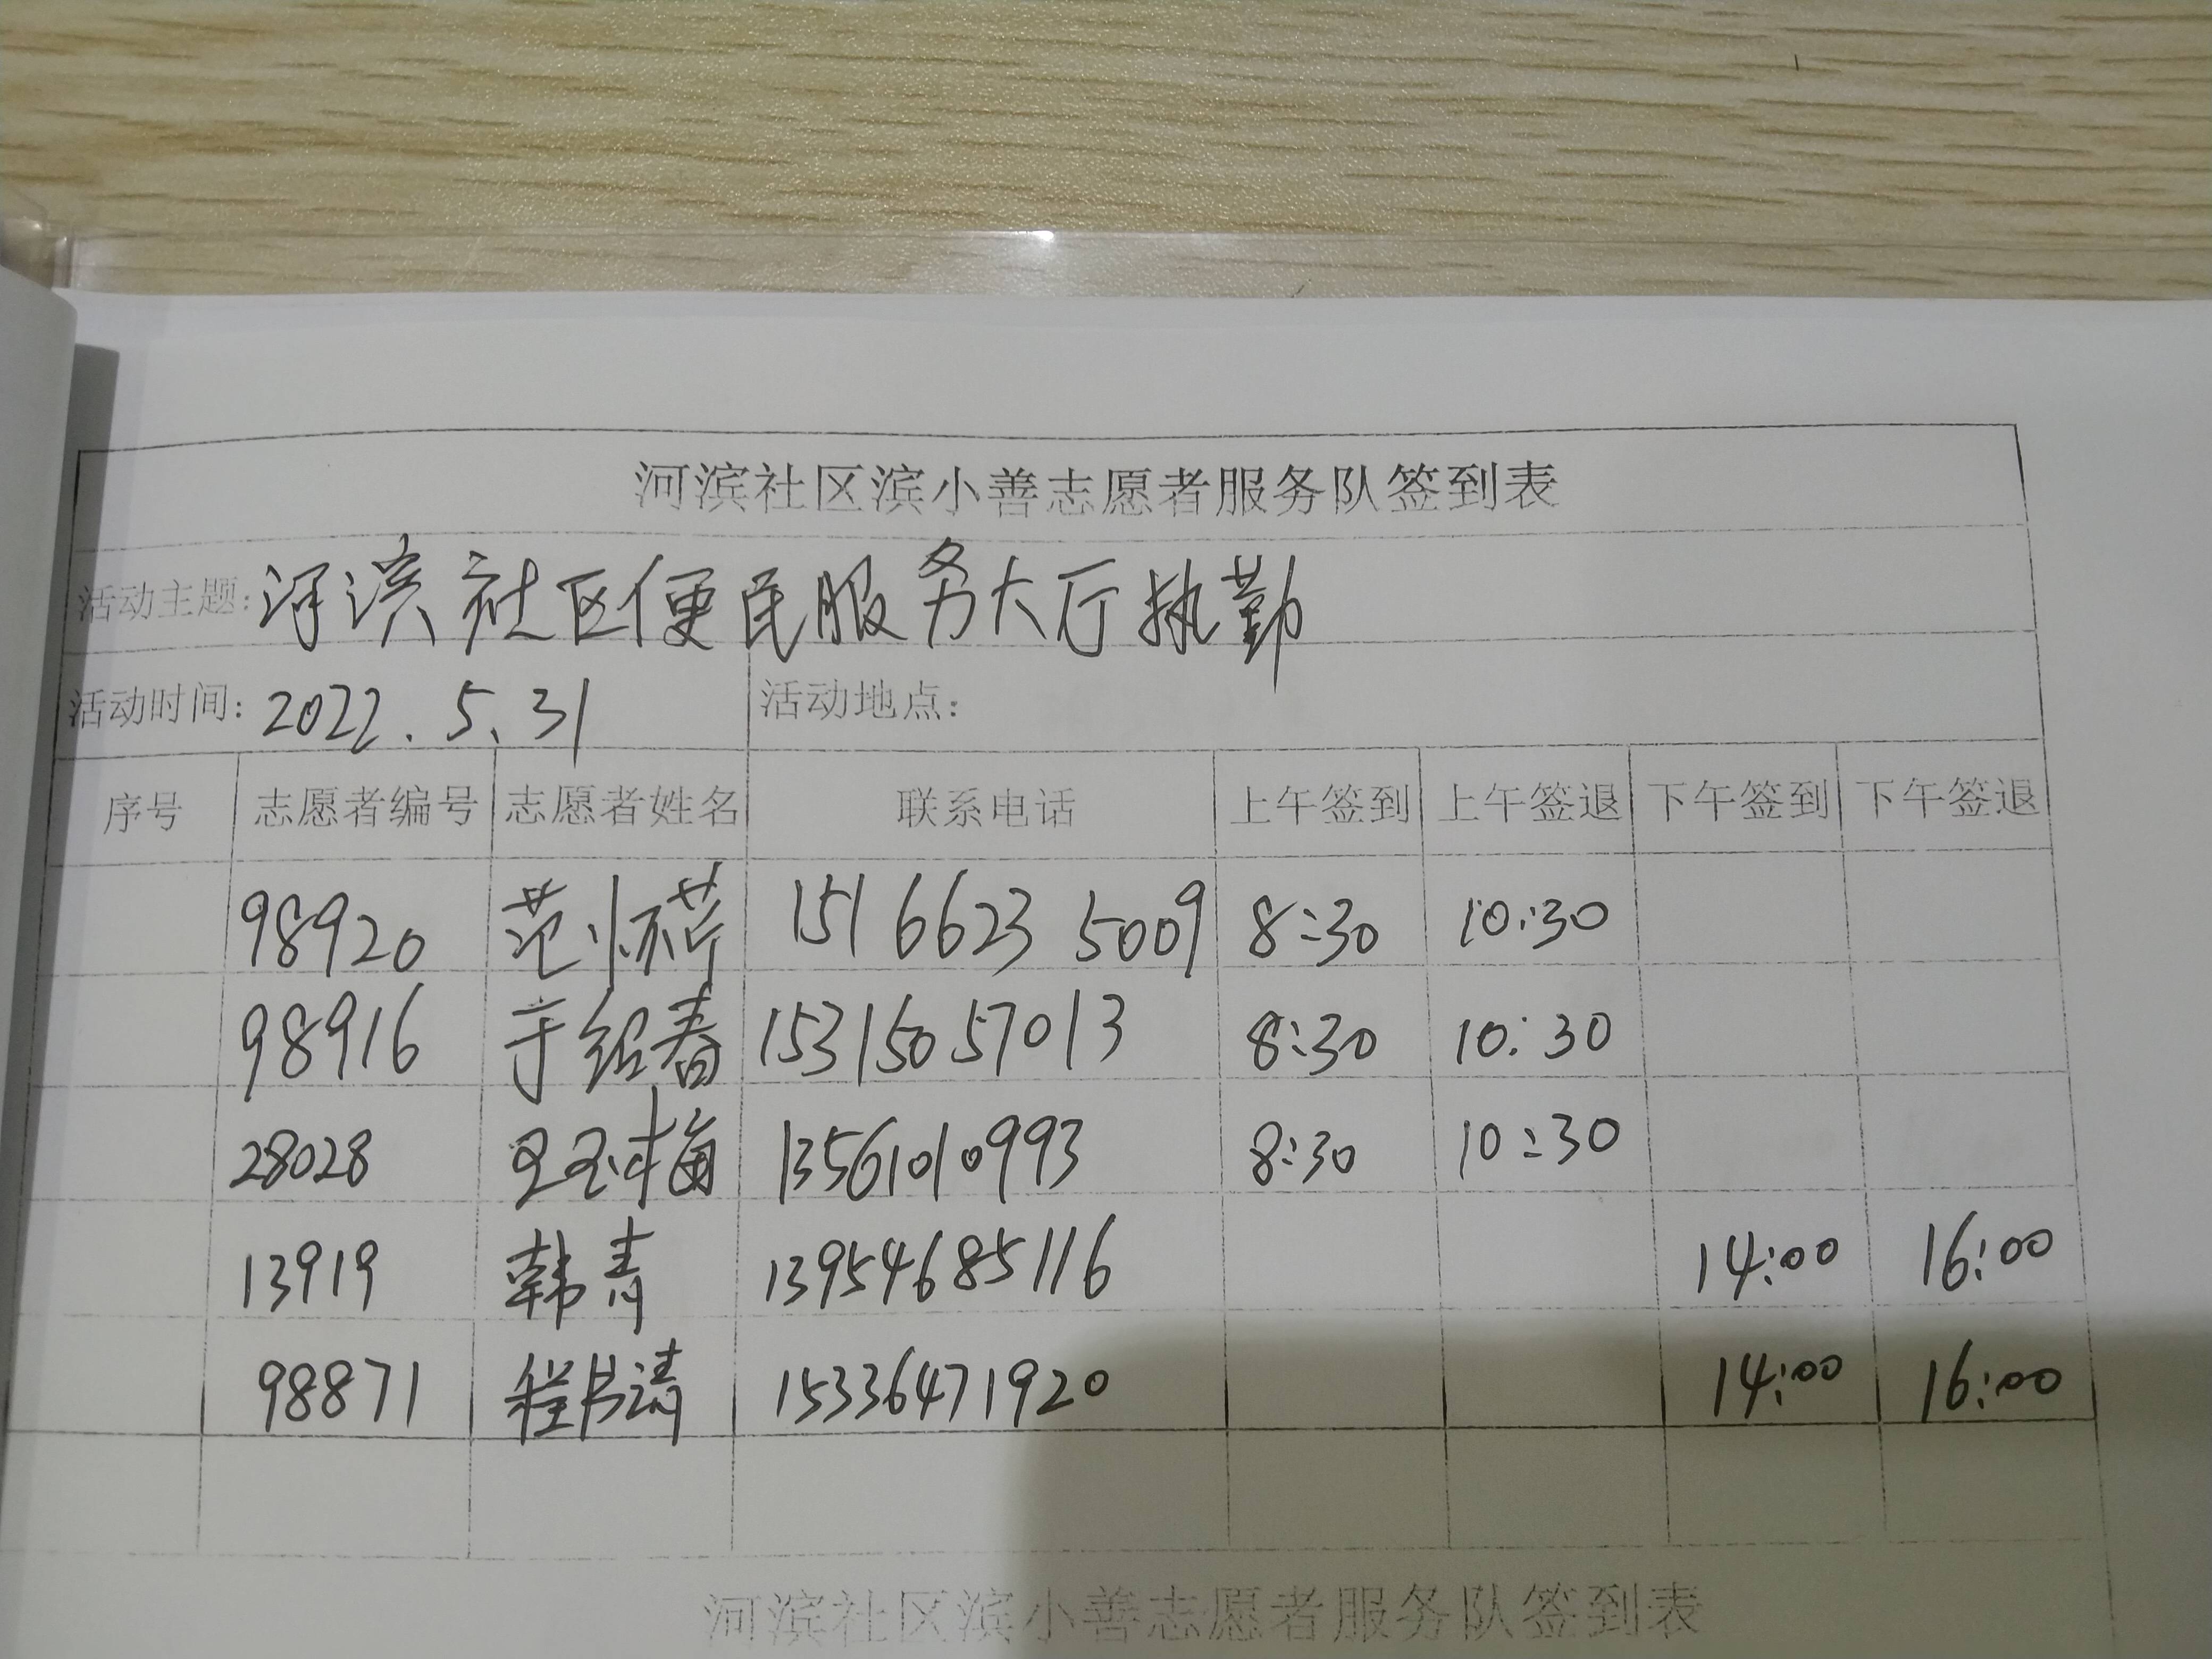 河滨社区滨小善志愿者服务队签到表
活动主题: 河滨社区便民服务大厅执勤
活动时间: 2022.5.31 活动地点:
序号 志愿者编号 志愿者姓名 联系电话 上午签到 上午签退 下午签到 下午签退
98920 范怀芹 151 6623 5009 8:30 10:30
98916 于绍春 15315057013 8:30 10:30
28028 13561010993 8:30 10:30
13919 韩青 13954685116 14:00 16:00
98871 程书请 15336471920 14:00 16:00
河滨社区滨小善志愿者服务队签到表